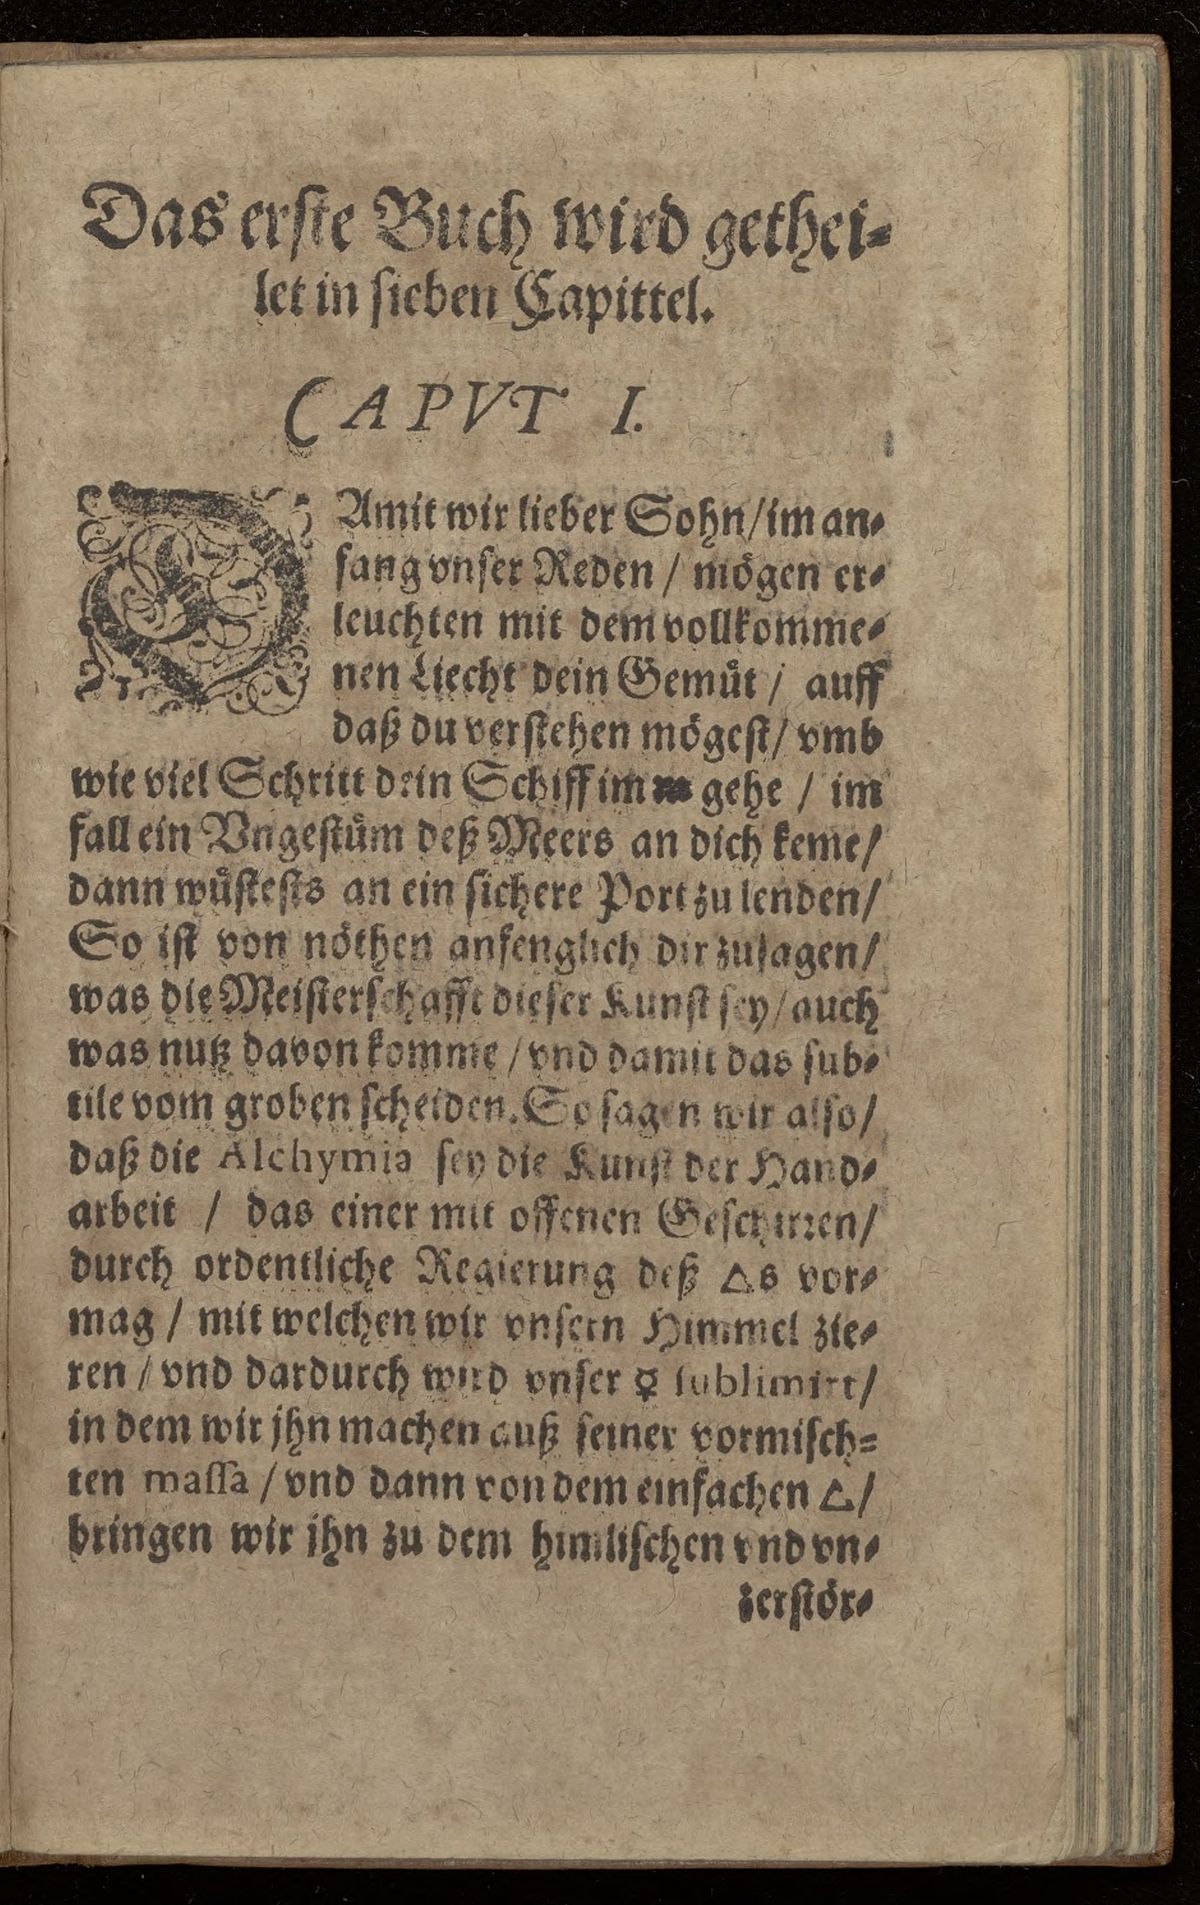 Das erste Buch wird gethei-
let in sieben Capittel.
CAPVT I.
DAmit wir lieber Sohn/im an-
fang vnser Reden / mögen er-
leuchten mit dem vollkomme-
nen Liecht dein Gemüt / auff
daß du verstehen mögest/ vmb
wie viel Schritt dein Schiff im gehe / im
fall ein Vngestüm deß Meers an dich keme/
dann wüstests an ein sichere Port zu lenden/
So ist von nöthen anfenglich dir zusagen/
was die Meisterschafft dieser Kunst sey/auch
was nutz davon komme / vnd damit das sub-
tile vom groben scheiden. So sagen wir also/
daß die Alchymia sey die Kunst der Hand-
arbeit / das einer mit offenen Geschirren/
durch ordentliche Regierung deß △s vor-
mag / mit welchen wir vnsern Himmel zie-
ren / vnd dardurch wird vnser ☿ sublimirt/
in dem wir jhn machen auß seiner vormisch-
ten massa / vnd dann von dem einfachen △/
bringen wir jhn zu dem himlischen vnd vn-
zerstör-